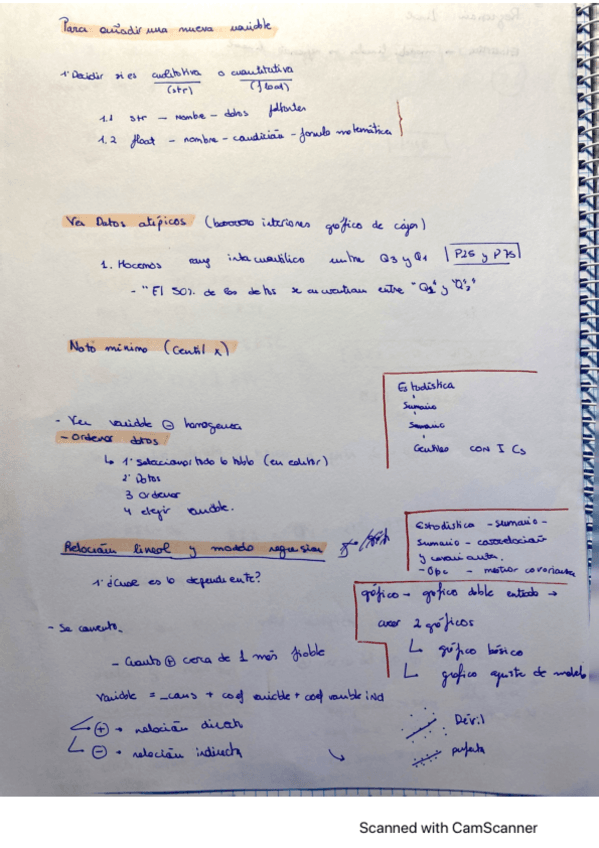 Para añadir una nueva variable
1º Decidir si es cualitativa o cuantitativa
(str) (float)
1.1 str - nombre - datos faltantes
1.2 float - nombre - condición - formula matemática
Ver Datos atípicos ( interiores gráfico de cajas)
1. Hacemos rang intercuartílico entre Q3 y Q1 P25 y P75
- "El 50% de los datos se encuentran entre "Q1" y "Q3"
Nota mínimo (Centil x)
Estadística
Sumario
Sumario
Centiles CON I Cs
- Ver variable ⊖ homogenea
- Ordenar datos
↳ 1º Seleccionar toda la tabla (en editor)
2º Datos
3 ordenar
4 elegir variable.
Relación lineal y modelo regresion
Estadística - sumario -
sumario - correlación
y covarianza.
- Opc - mostrar covarianza
1º ¿Cual es la dependiente?
gráfico - gráfico doble entrada →
crear 2 gráficos
↳ gráfico básico
↳ grafico ajuste de modelo
- Se comenta.
- Cuanto ⊕ cerca de 1 más fiable
Variable = _cons + coef variable + coef variable ind
⊕ → relación directa
⊖ → relación indirecta
Dévil
perfecta
Scanned with CamScanner